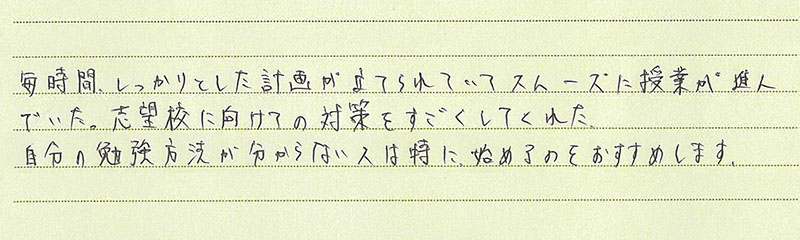 毎時間、しっかりとした計画が立てられていてスムーズに授業が進ん
でいた。志望校に向けての対策をすごくしてくれた。
自分の勉強方法が分からない人は特に、始めるのをおすすめします。